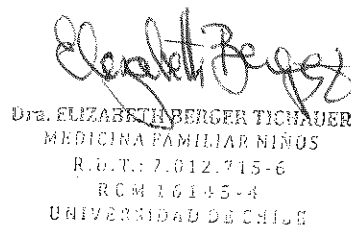 Elizabeth Berger
Dra. ELIZABETH BERGER TICHAUER
MEDICINA FAMILIAR NIÑOS
R.U.T.: 7.012.715-6
RCM 16145-4
UNIVERSIDAD DE CHILE